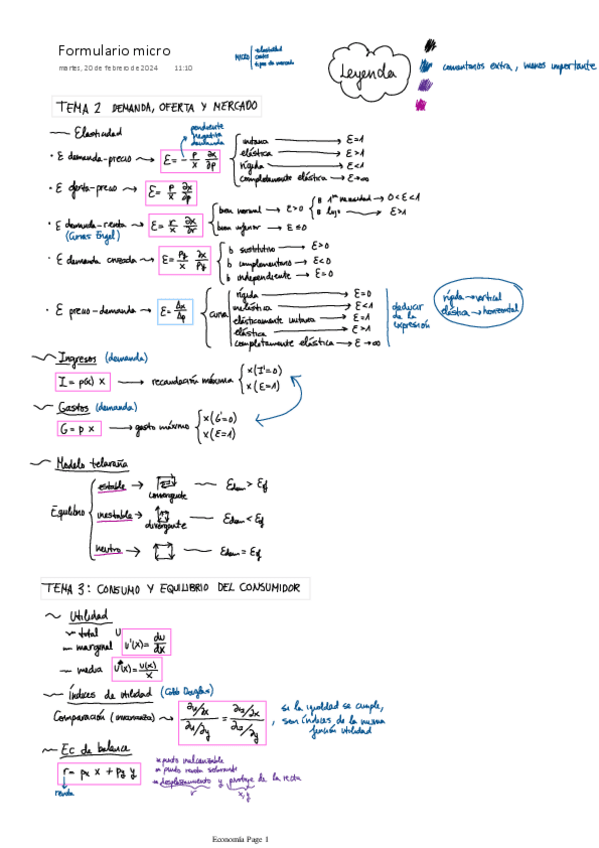 Formulario micro
martes, 20 de febrero de 2024 11:10
MICRO elasticidad
costes
tipos de mercado
Leyenda
comentarios extra, menos importante
TEMA 2 DEMANDA, OFERTA Y MERCADO
Elasticidad
pendiente negativa demanda
· E demanda-precio → E = - p/x ∂x/∂p
unitaria → E=1
elástica → E>1
rígida → E<1
completamente elástica → E→∞
· E oferta-precio → E = p/x ∂x/∂p
· E demanda-renta → E = r/x ∂x/∂r
(Curvas Engel)
bien normal → E>0
B 1ª necesidad → 0<E<1
B lujo → E>1
bien inferior → E≤0
· E demanda cruzada → E = Py/x ∂x/∂Py
b sustitutivo → E>0
b complementario → E<0
b independiente → E=0
· E precio-demanda → E = Δx/Δp
curva
rígida → E=0
inelástica → E<1
elásticamente unitaria → E=1
elástica → E>1
completamente elástica → E→∞
deducir de la expresión
rígida → vertical
elástica → horizontal
Ingresos (demanda)
I = p(x) x → recaudación máxima
x(I'=0)
x(E=1)
Gastos (demanda)
G = p x → gasto máximo
x(G'=0)
x(E=1)
Modelo telaraña
Equilibrio
estable → convergente — Edem > Eof
inestable → divergente — Edem < Eof
neutro → — Edem = Eof
TEMA 3: CONSUMO Y EQUILIBRIO DEL CONSUMIDOR
Utilidad
total U
marginal u'(x) = du/dx
media u*(x) = u(x)/x
Índices de utilidad (Cobb Douglas)
Comparación → ∂u/∂x / ∂u/∂y = ∂z/∂x / ∂z/∂y , si la igualdad se cumple,
son índices de la misma
función utilidad
Ec de balance
r = px x + py y
renta
punto inalcanzable
punto renta sobrante
desplazamiento y pivotaje de la recta
r x,y
Economía Page 1